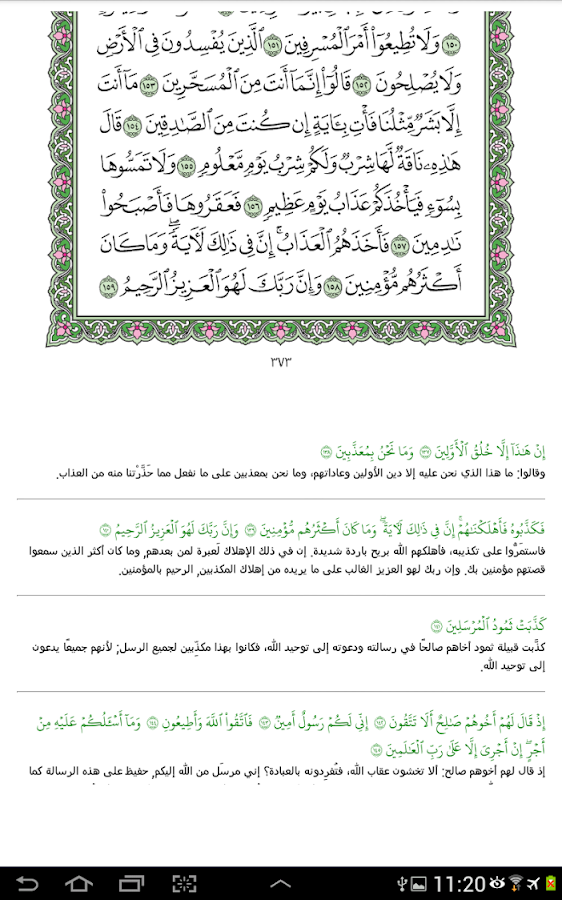 ١٥٠ وَلَا تُطِيعُوٓا۟ أَمْرَ ٱلْمُسْرِفِينَ ١٥١ ٱلَّذِينَ يُفْسِدُونَ فِى ٱلْأَرْضِ
وَلَا يُصْلِحُونَ ١٥٢ قَالُوٓا۟ إِنَّمَآ أَنتَ مِنَ ٱلْمُسَحَّرِينَ ١٥٣ مَآ أَنتَ
إِلَّا بَشَرٌ مِّثْلُنَا فَأْتِ بِـَٔايَةٍ إِن كُنتَ مِنَ ٱلصَّـٰدِقِينَ ١٥٤ قَالَ
هَـٰذِهِۦ نَاقَةٌ لَّهَا شِرْبٌ وَلَكُمْ شِرْبُ يَوْمٍ مَّعْلُومٍ ١٥٥ وَلَا تَمَسُّوهَا
بِسُوٓءٍ فَيَأْخُذَكُمْ عَذَابُ يَوْمٍ عَظِيمٍ ١٥٦ فَعَقَرُوهَا فَأَصْبَحُوا۟
نَـٰدِمِينَ ١٥٧ فَأَخَذَهُمُ ٱلْعَذَابُ ۗ إِنَّ فِى ذَٰلِكَ لَـَٔايَةً ۖ وَمَا كَانَ
أَكْثَرُهُم مُّؤْمِنِينَ ١٥٨ وَإِنَّ رَبَّكَ لَهُوَ ٱلْعَزِيزُ ٱلرَّحِيمُ ١٥٩
٣٧٣
إِنْ هَـٰذَآ إِلَّا خُلُقُ ٱلْأَوَّلِينَ ١٣٧ وَمَا نَحْنُ بِمُعَذَّبِينَ ١٣٨
وقالوا: ما هذا الذي نحن عليه إلا دين الأولين وعاداتهم، وما نحن بمعذبين على ما نفعل مما حَذَّرْتنا منه من العذاب.
فَكَذَّبُوهُ فَأَهْلَكْنَـٰهُمْ ۗ إِنَّ فِى ذَٰلِكَ لَـَٔايَةً ۖ وَمَا كَانَ أَكْثَرُهُم مُّؤْمِنِينَ ١٣٩ وَإِنَّ رَبَّكَ لَهُوَ ٱلْعَزِيزُ ٱلرَّحِيمُ ١٤٠
فاستمَرُّوا على تكذيبه، فأهلكهم الله بريح باردة شديدة. إن في ذلك الإهلاك لَعبرة لمن بعدهم, وما كان أكثر الذين سمعوا
قصتهم مؤمنين بك. وإن ربك لهو العزيز الغالب على ما يريده من إهلاك المكذبين, الرحيم بالمؤمنين.
كَذَّبَتْ ثَمُودُ ٱلْمُرْسَلِينَ ١٤١
كذَّبت قبيلة ثمود أخاهم صالحًا في رسالته ودعوته إلى توحيد الله، فكانوا بهذا مكذِّبين لجميع الرسل; لأنهم جميعًا يدعون
إلى توحيد الله.
إِذْ قَالَ لَهُمْ أَخُوهُمْ صَـٰلِحٌ أَلَا تَتَّقُونَ ١٤٢ إِنِّى لَكُمْ رَسُولٌ أَمِينٌ ١٤٣ فَٱتَّقُوا۟ ٱللَّهَ وَأَطِيعُونِ ١٤٤ وَمَآ أَسْـَٔلُكُمْ عَلَيْهِ مِنْ
أَجْرٍ ۖ إِنْ أَجْرِىَ إِلَّا عَلَىٰ رَبِّ ٱلْعَـٰلَمِينَ ١٤٥
إذ قال لهم أخوهم صالح: ألا تخشون عقاب الله، فتُفرِدونه بالعبادة؟ إني مرسَل من الله إليكم, حفيظ على هذه الرسالة كما
11:20